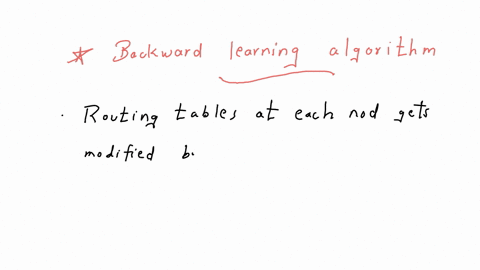 * Backward learning algorithm
. Routing tables at each nod gets
modified b